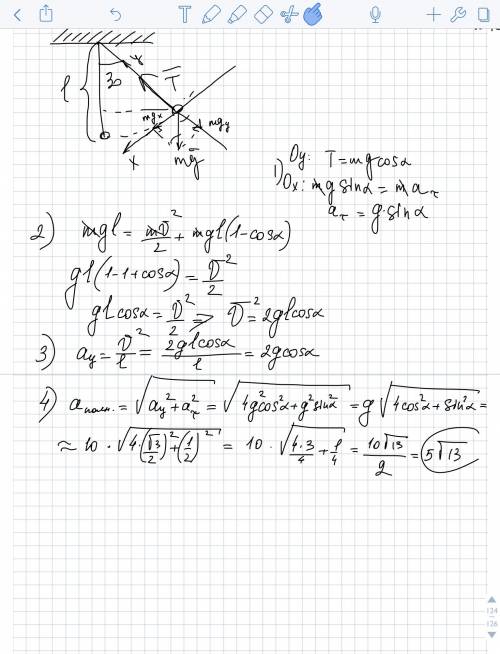 l
30
y
T̅
mgx
mgy
x
mg̅
1) Oy: T = mg cosα
Ox: mg sinα = m aτ
aτ = g·sinα
2) mgl = mv²/2 + mgl(1-cosα)
gl(1-1+cosα) = v²/2
gl cosα = v²/2 => v² = 2gl cosα
3) ay = v²/l = 2gl cosα/l = 2g cosα
4) aполн. = √(ay² + aτ²) = √(4g²cos²α + g²sin²α) = g√(4cos²α + sin²α) =
≈ 10·√(4·(√3/2)² + (1/2)²) = 10·√(4·3/4 + 1/4) = 10√13/2 = 5√13
124
126